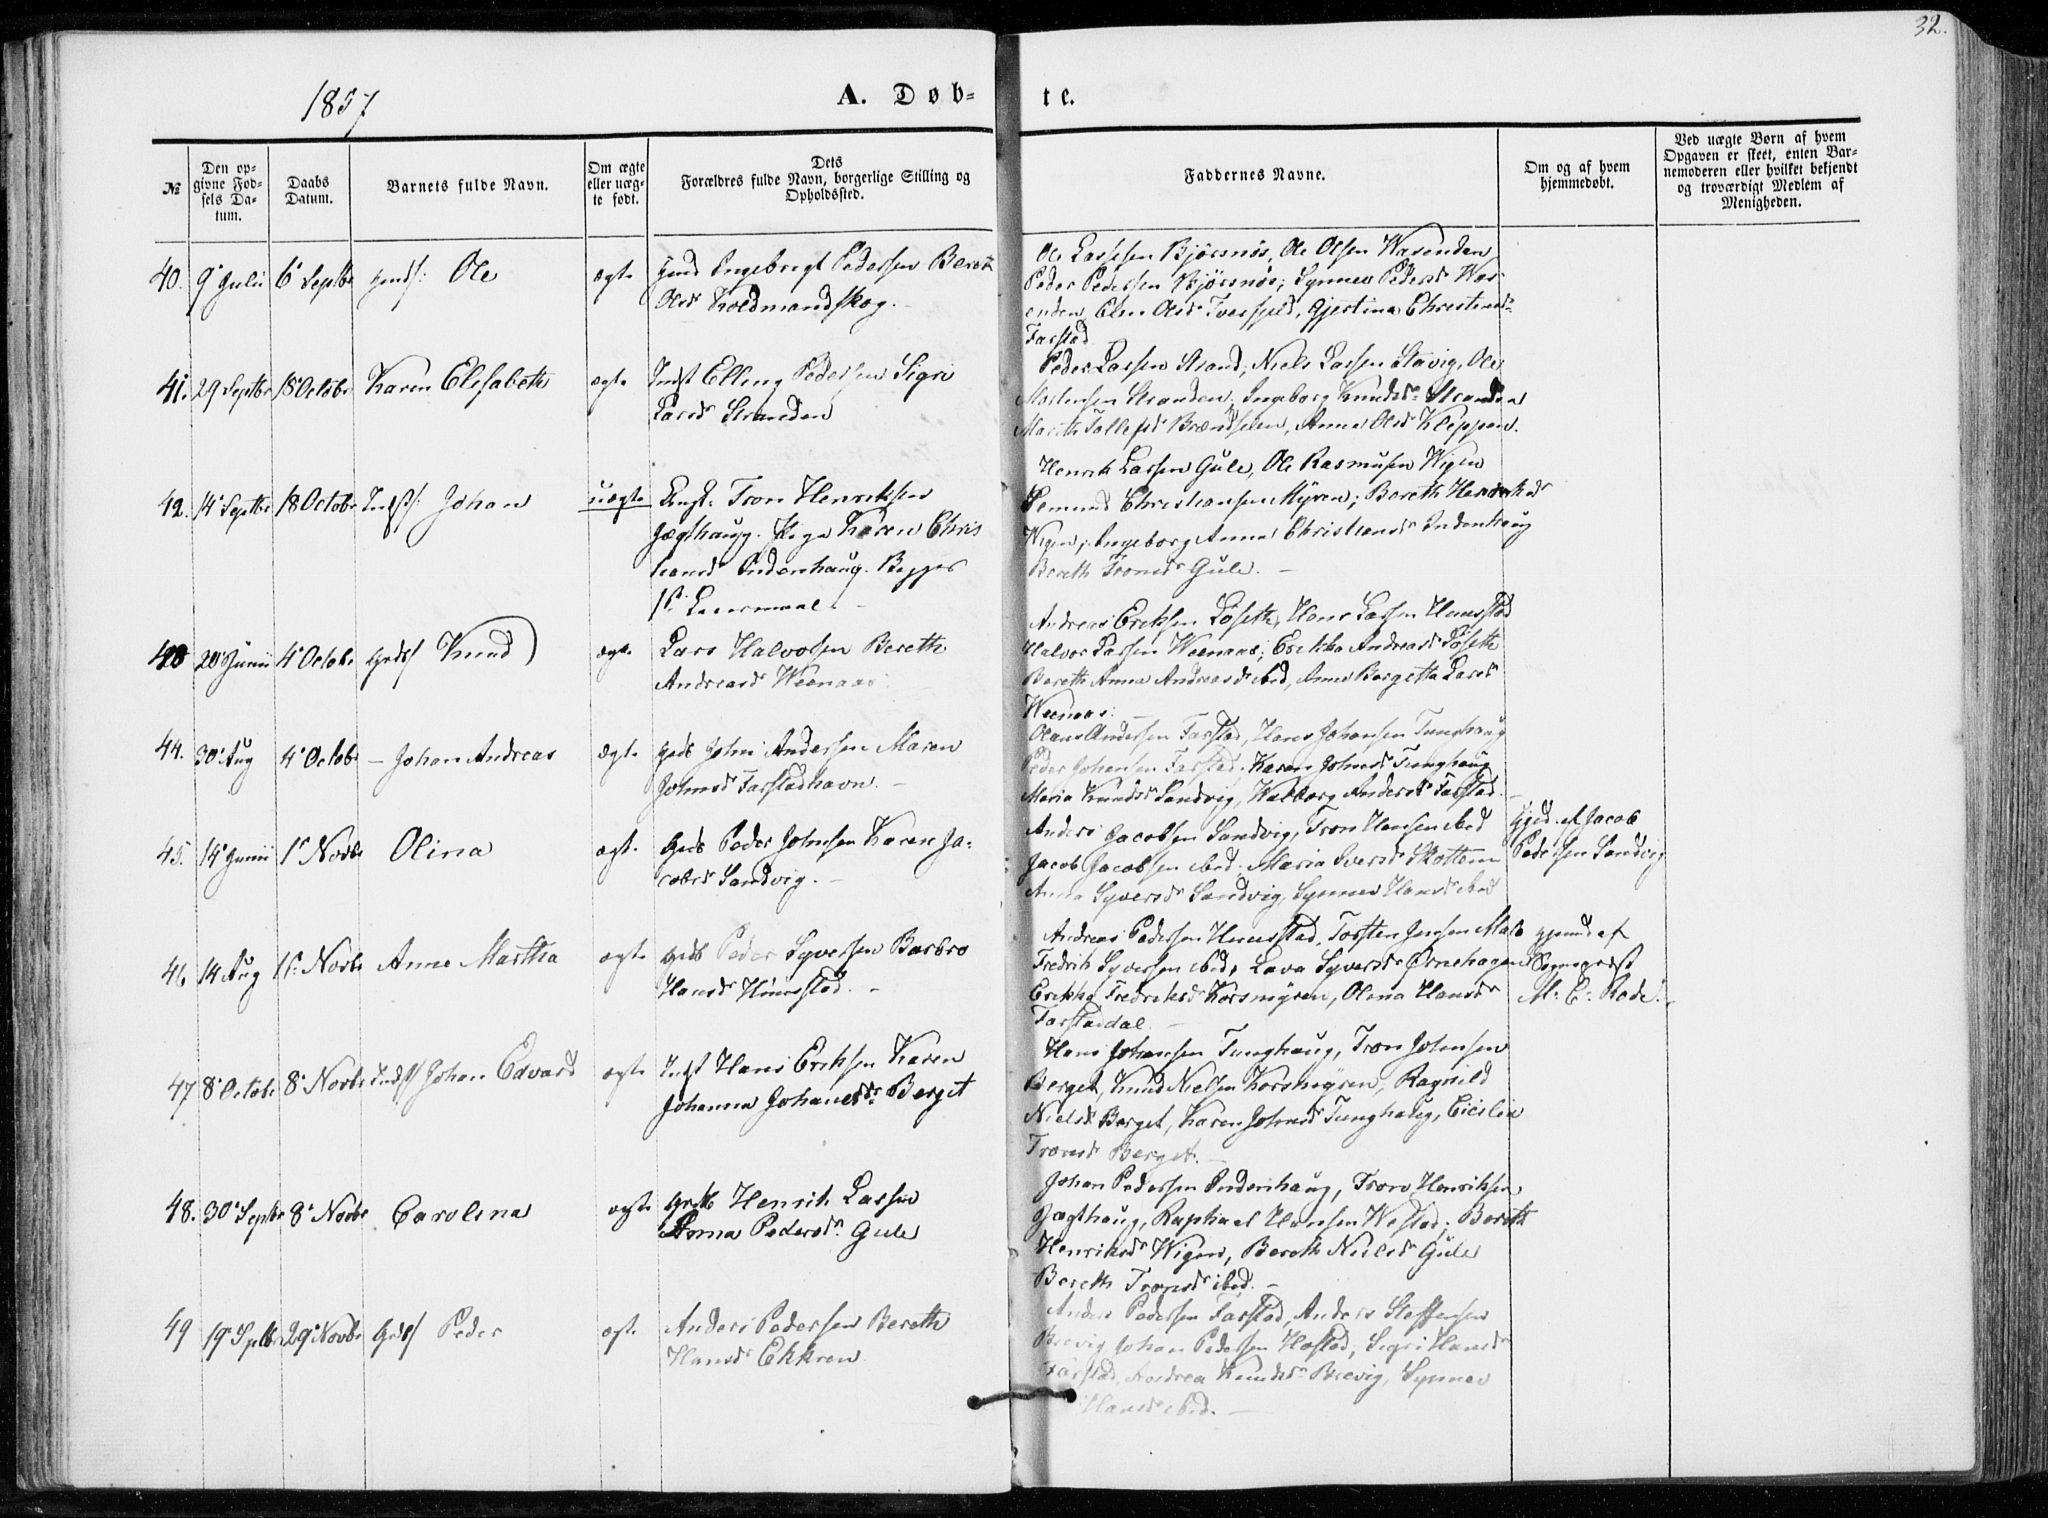 32.
1857
A. Døb-
te.
№
Den op-
givne Fød-
sels Da-
tum.
Daabs
Datum.
Barnets fulde Navn.
Om ægte
eller uæg-
te født.
Dets
Forældres fulde Navn, borgerlige Stilling og
Opholdssted.
Faddernes Navne.
Om og af hvem
hjemmedøbt.
Ved uægte Børn af hvem
Opgaven er skeet, enten Bar-
nemoderen eller hvilket bekjendt
og troværdigt Medlem af
Menigheden.
40. 9' Julii 6' Septbr Ole ægte Engebrigt Pedersen Bereth
Olsd Holdmandskog.
Ole Larsen Bjørsnøs, Ole Olsen Wasenden
Peder Pedersen Bjørsnøs; Synnev Pedersd Was
enden, Elen Olsd Tverfjeld, Gjertina Christensd
Farstad
41. 29 Septbr 18 Octobr Karen Elisabeth ægte Inds Elling Pedersen Sigri
Larsd Stranden
Peder Larsen Strand, Niels Larsen Stavig, Ole
Mortensen Stranden, Ingeborg Knudsd Stranden
Marith Tollefsd Brændselen, Anne Olsd Kleppen.
42. 14 Septbr 18 Octobr Johan uægte Ungk. Tron Henriksen
Jægthaug. Pige Karen Chris
tiansd Indenhaug. Begges
1ste Leiermaal.
Henrik Larsen Gule, Ole Rasmusen Wigen
Semund Christiansen Myren; Bereth Henriksd
Wigen; Ingeborg Anna Christiansd Indenhaug
Bereth Tronsd Gule.
43 20 Junii 4 Octobr Knud ægte Lars Halvorsen Bereth
Andreasd Weenaas.
Andreas Eriksen Løseth, Hans Larsen Huusstad
Halvor Larsen Weenaas; Erikka Andreasd Løseth
Bereth Anna Andreasd ibid, Anne Bergetta Larsd
Weenaas.
44. 30' Aug 4' Octobr – Johan Andreas ægte John Andersen Maren
Johnsd Farstadhavn.
Olaus Andersen Farstad, Hans Johansen Tunghaug
Peder Johansen Farstad, Karen Johnsd Tunghaug
Maria Knudsd Sandvig, Walborg Andersd Farstad.
45. 14' Junii 1' Novbr Olina ægte Peder Johnsen Karen Ja-
cobsd Sandvig.
Anders Jacobsen Sandvig, Tron Hansen ibid
Jacob Jacobsen ibid, Maria Iversd Skottem
Anna Syversd Sandvig, Synnev Hansd ibid
Hjd. af Jacob
Pedersen Sandvig
46 14 Aug 1' Novbr Anne Martha ægte Peder Syversen Barbro
Hansd Huusstad.
Andreas Pedersen Huusstad, Torsten Jensen Male
Fredrik Syversen ibid, Lava Syversd Ornehagen
Erikka Fredriksd Korsmyren, Olina Hansd
Farstaddal.
af
Sognepræst
M. C. Rode.
47 8' Octobr 8' Novbr Inds/ Johan Edvard ægte Inds Hans Eriksen Karen
Johanna Johanesd Berget
Hans Johansen Tunghaug, Tron Johnsen
Berget, Knud Nielsen Korsmyren, Ragnild
Nielsd Berget, Karen Johnsd Tunghaug, Cicilia
Tronsd Berget.
48. 30' Septbr 8' Novbr Carolina ægte Henrik Larsen
Anna Pedersd Gule
Johan Pedersen Indenhaug, Tron Henriksen
Jægthaug, Raphael Hansen Westad, Bereth
Henriksd Wigen, Bereth Nielsd Gule
Bereth Tronsd ibid.
49 19 Septbr 29' Novbr Peder ægte Anders Pedersen Bereth
Hansd Ekkren
Anders Pedersen Farstad, Anders Steffensen
Brevig, Johan Pedersen Hostad, Sigri Hansd
Farstad, Andrea Knudsd Brevig, Synnev
Hansd ibid.